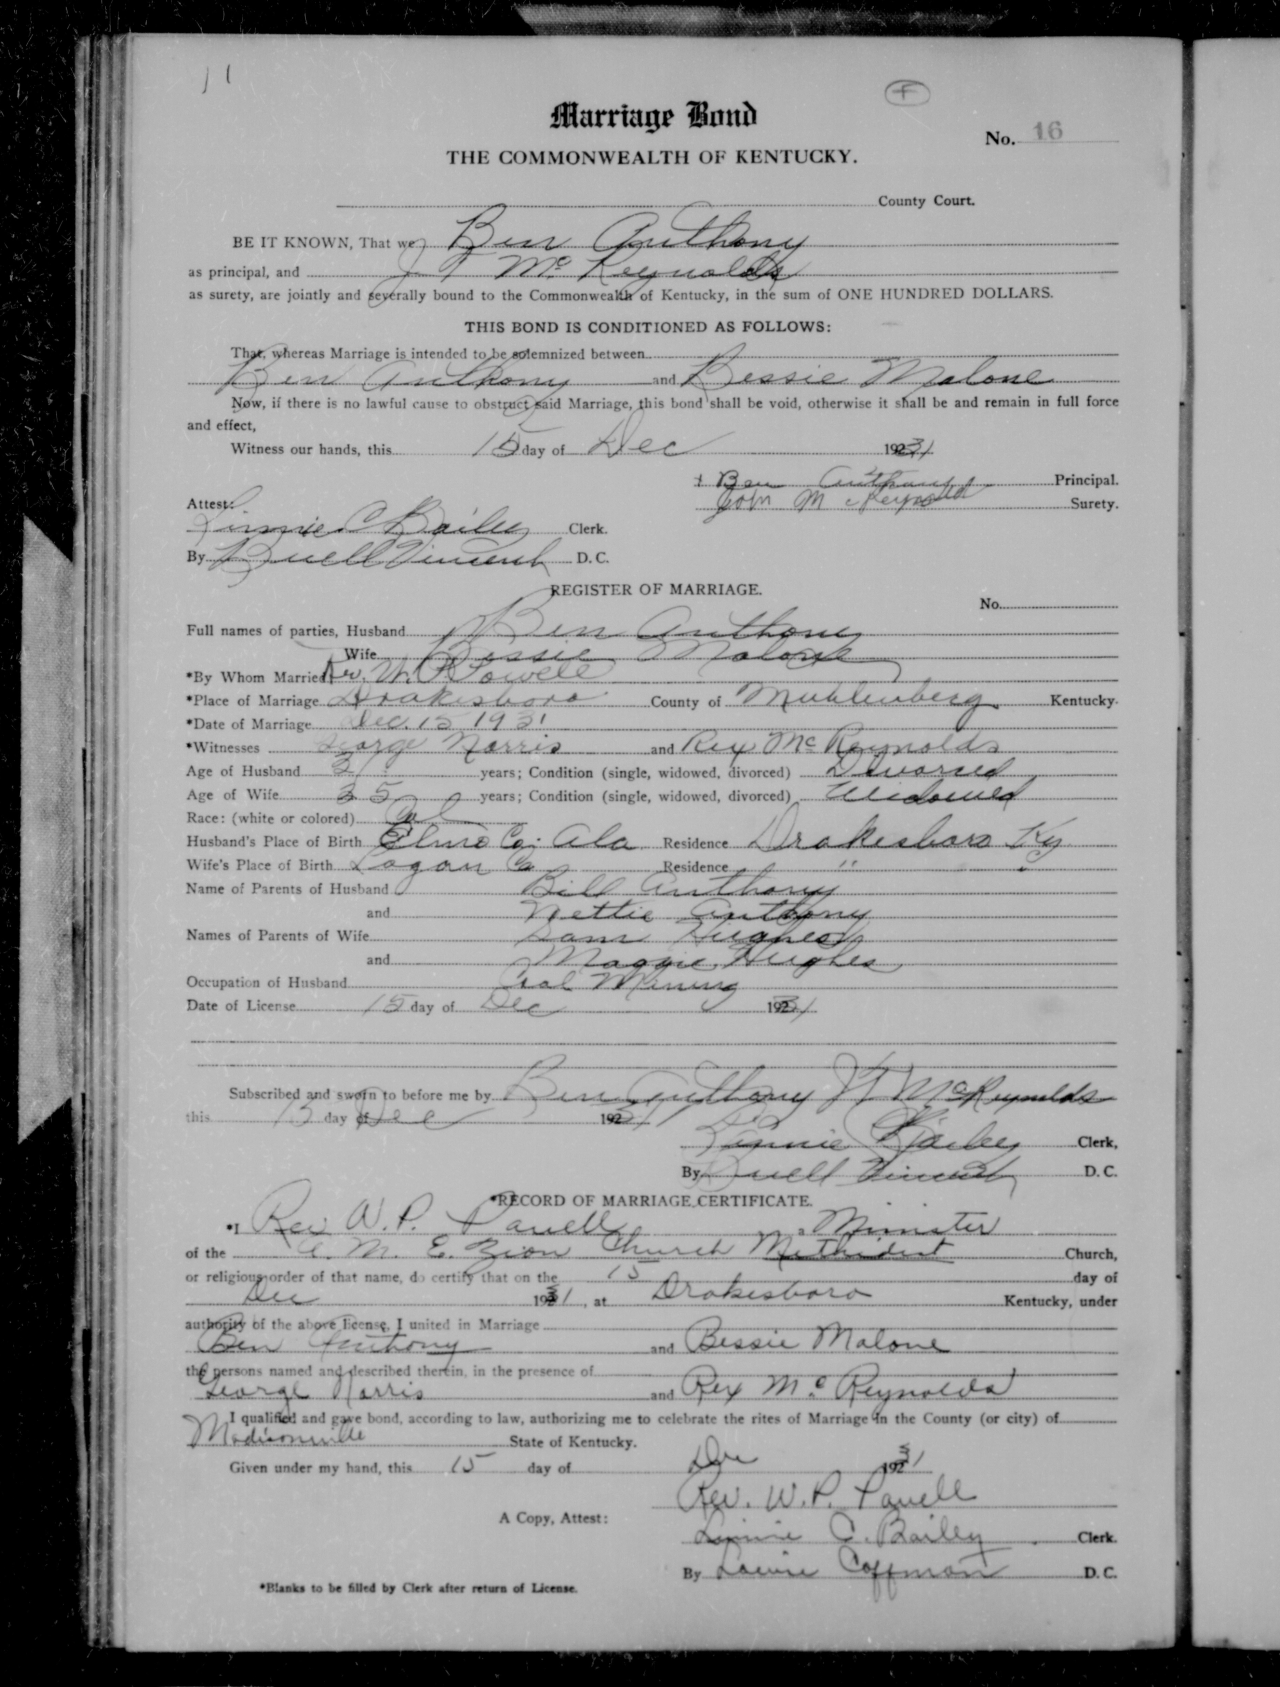 11
F
Marriage Bond
No. 16
THE COMMONWEALTH OF KENTUCKY.
County Court.
BE IT KNOWN, That we, Ben Anthony
as principal, and J T McReynolds
as surety, are jointly and severally bound to the Commonwealth of Kentucky, in the sum of ONE HUNDRED DOLLARS.
THIS BOND IS CONDITIONED AS FOLLOWS:
That, whereas Marriage is intended to be solemnized between
Ben Anthony and Bessie Malone
Now, if there is no lawful cause to obstruct said Marriage, this bond shall be void, otherwise it shall be and remain in full force
and effect,
Witness our hands, this 15 day of Dec 1931
+ Ben Anthony Principal.
Attest: John McReynold Surety.
Linnie C Bailey Clerk.
By Buell Vincent D. C.
REGISTER OF MARRIAGE.
No.
Full names of parties, Husband Ben Anthony
Wife Bessie Malone
*By Whom Married Rev. W. P. Powell
*Place of Marriage Drakesboro County of Muhlenberg Kentucky.
*Date of Marriage Dec. 15 1931
*Witnesses George Norris and Rex McReynolds
Age of Husband 37 years; Condition (single, widowed, divorced) Divorsed
Age of Wife 35 years; Condition (single, widowed, divorced) Widowed
Race: (white or colored) Col
Husband's Place of Birth Elmo Co. Ala Residence Drakesboro Ky
Wife's Place of Birth Logan Co Residence " "
Name of Parents of Husband Bill Anthony
and Nettie Anthony
Names of Parents of Wife Sam Hughes
and Maggie Hughes
Occupation of Husband Coal Mining
Date of License 15 day of Dec 1931
Subscribed and sworn to before me by Ben Anthony J T McReynolds
this 15 day of Dec 1931
Linnie C Bailey Clerk,
By Buell Vincent D. C.
*RECORD OF MARRIAGE CERTIFICATE.
*I Rev W. P. Powell a Minister
of the A. M. E. Zion Church Methidist Church,
or religious order of that name, do certify that on the 15 day of
Dec 1931, at Drakesboro Kentucky, under
authority of the above license, I united in Marriage
Ben Anthony and Bessie Malone
the persons named and described therein, in the presence of
George Norris and Rex McReynolds
I qualified and gave bond, according to law, authorizing me to celebrate the rites of Marriage in the County (or city) of
Madisonville State of Kentucky.
Given under my hand, this 15 day of Dec 1931
Rev. W. P. Powell
A Copy, Attest: Linnie C. Bailey Clerk.
By Louise Coffman D. C.
*Blanks to be filled by Clerk after return of License.